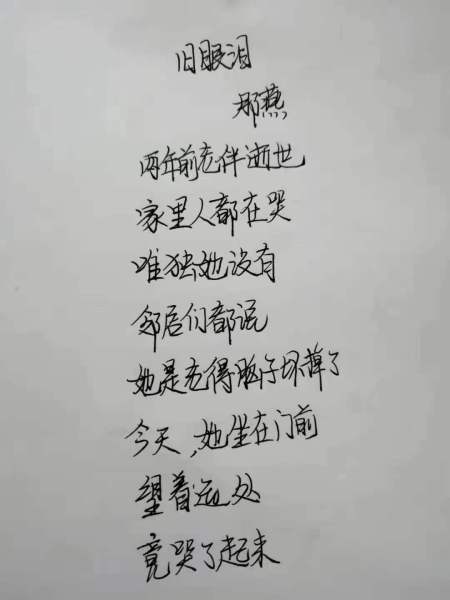 旧眼泪
那燕
两年前老伴逝世
家里人都在哭
唯独她没有
邻居们都说
她是老得脑子坏掉了
今天,她坐在门前
望着远处
竟哭了起来